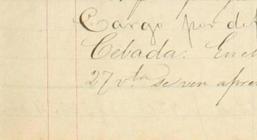 Cargo por de
Cebada. En el
27 vta. Se ven apre